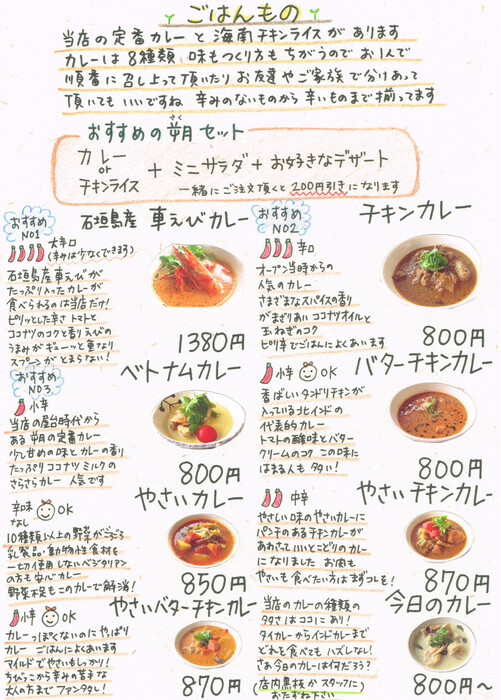 ごはんもの
当店の定番カレーと海南チキンライスがあります
カレーは8種類、味もつくり方もちがうのでお1人で
順番に召し上って頂いたりお友達やご家族で分けあって
頂いてもいいですね 辛みのないものから辛いものまで揃ってます
おすすめの朔セット
さく
カレー
or
チキンライス
+ ミニサラダ + お好きなデザート
一緒にご注文頂くと200円引きになります
おすすめ
NO1
石垣島産 車えびカレー
大辛口
(辛みは少なくできます)
石垣島産車えびが
たっぷり入ったカレーが
食べられるのは当店だけ!
ピリッとした辛さトマトと
ココナツのコクと香りえびの
うまみがギューッと重なり
スプーンがとまらない!
1380円
おすすめ
NO2
チキンカレー
辛口
オープン当時からの
人気のカレー
さまざまなスパイスの香り
がまざりあいココナツオイルと
玉ねぎのコク
ピリ辛でごはんによくあいます
800円
おすすめ
NO3
ベトナムカレー
小辛
当店の屋台時代から
ある朔の定番カレー
少し甘めの味とカレーの香り
たっぷりココナツミルクの
さらさらカレー 人気です
800円
バターチキンカレー
小辛 OK
香ばしいタンドリチキンが
入っている北インドの
代表的カレー
トマトの酸味とバター
クリームのコク この味に
はまる人も多い!
800円
やさいカレー
辛味
なし
OK
10種類以上の野菜がごろごろ
乳製品・動物性食材を
一切使用しないベジタリアン
の方も安心カレー
野菜不足もこのカレーで解消!
850円
やさいチキンカレー
中辛
やさしい味のやさいカレーに
パンチのあるチキンカレーが
あわさっていいとこどりのカレー
になりました お肉も
やさいも食べたい方はまずコレを!
870円
やさいバターチキンカレー
小辛 OK
カレーっぽくないのにやっぱり
カレー ごはんによくあいます
マイルドでやさいもしっかり!
ちびっこから辛みの苦手な
大人の方までファンタレ!
870円
今日のカレー
当店のカレーの種類の
多さはココにあり!
タイカレーからインドカレーまで
どれを食べてもハズレなし!
さあ今日のカレーは何だろう?
(店内黒板かスタッフに
おたずね下さい)
800円〜